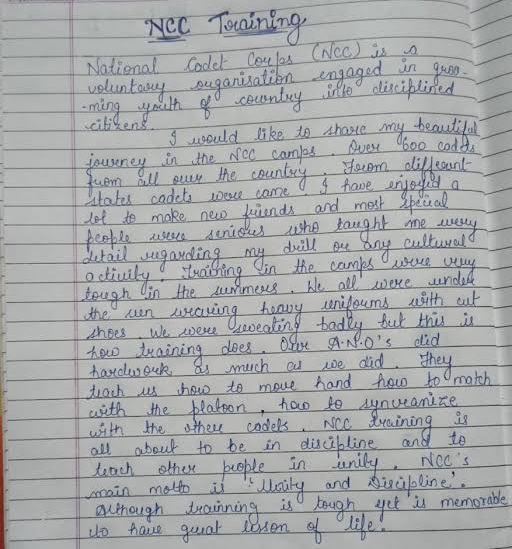 NCC Training
National Cadet Corps (NCC) is a
voluntary organisation engaged in groo-
-ming youth of country into disciplined
citizens.
I would like to share my beautiful
journey in the NCC camps. Over 600 cadets
from all over the country. From different
states cadets were came. I have enjoyed a
lot to make new friends and most special
people were seniors who taught me every
detail regarding my drill or any cultural
activity. Training in the camps were very
tough in the summers. We all were under
the sun wearing heavy uniforms with cut
shoes. We were sweating badly but this is
how training does. Our A.N.O's did
hardwork as much as we did. They
teach us how to move hand how to match
with the platoon, how to syncranize
with the other cadets. NCC training is
all about to be in discipline and to
teach other people in unity. NCC's
main motto is 'Unity and Discipline'.
Although trainning is tough yet is memorable
to have great lesson of life.